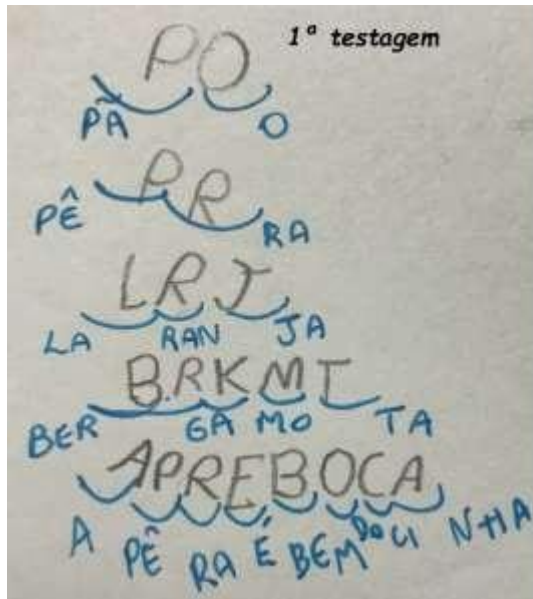 1ª testagem
PO
PÃ O
PR
PÊ RA
LRJ
LA RAN JA
BRKMT
BER GA MO TA
APREBOCA
A PÊ RA É BEM DO CI NHA